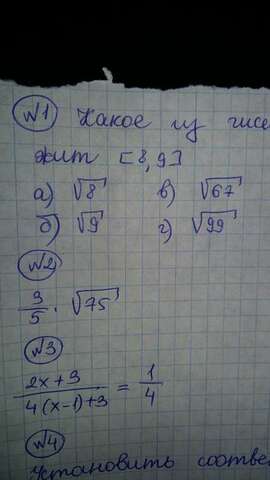 №1 Какое из чисе
жит [8,9]
а) √8 в) √67
б) √9 г) √99
№2
3/5 · √75
№3
(2x+3)/(4(x-1)+3) = 1/4
№4
Установить соотве